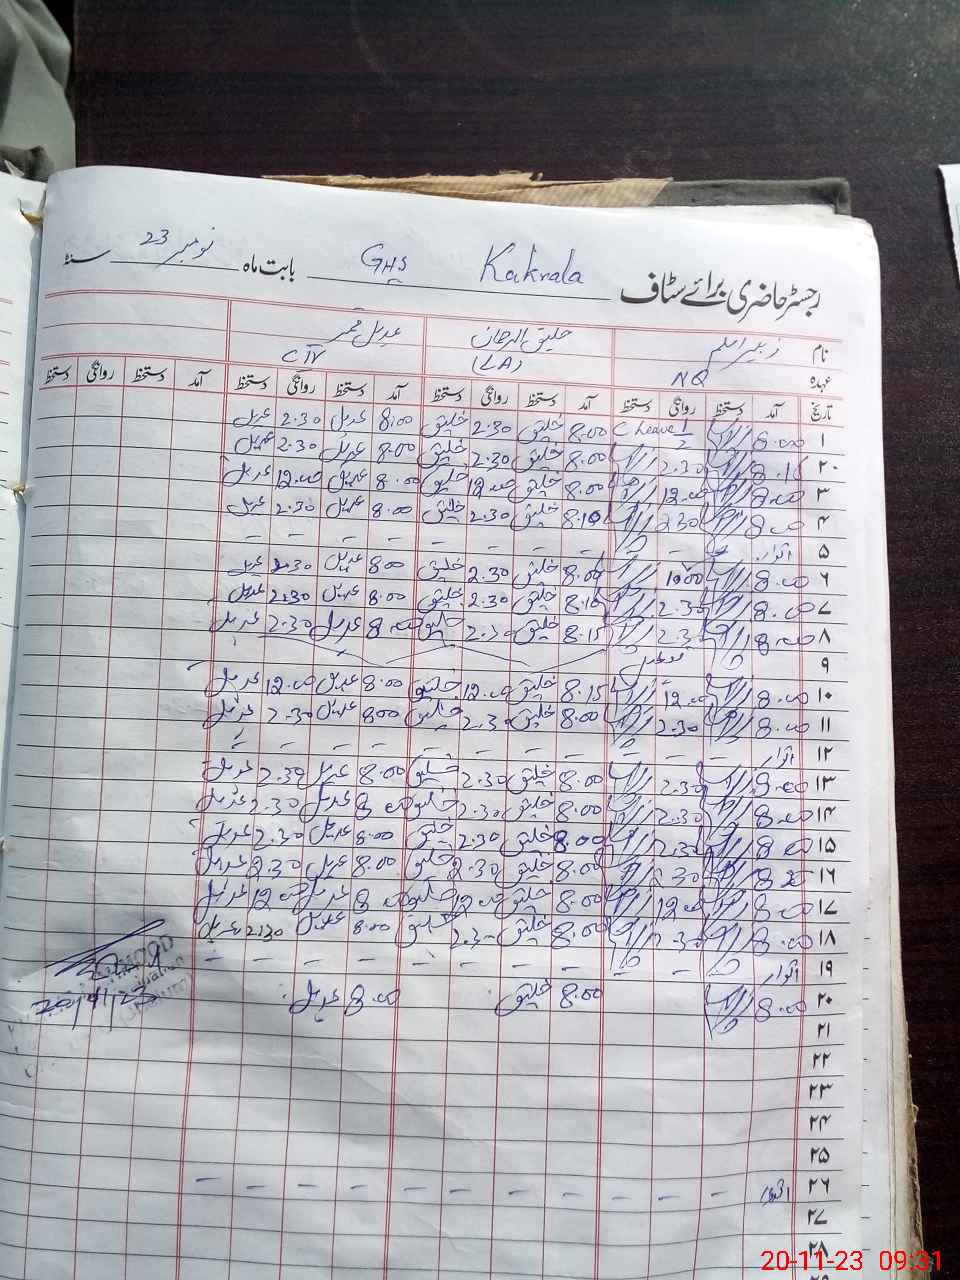 رجسٹر حاضری برائے سٹاف Kakrala GHS بابت ماہ نومبر 23 سنہ
نام زبیر اسلم خلیق الرحمان عدیل قمر
عہدہ NQ (LA)
تاریخ آمد دستخط روانگی دستخط آمد دستخط روانگی دستخط آمد دستخط روانگی دستخط آمد دستخط روانگی دستخط
۱ 8.00 C leave 1/2 8.00 خلیق 2.30 خلیق 8.00 عدیل 2.30 عدیل
۲ 8.10 2.30 8.00 خلیق 2.30 خلیق 8.00 عدیل 2.30 عدیل
۳ 8.00 12.00 8.00 خلیق 12.00 خلیق 8.00 عدیل 12.00 عدیل
۴ 8.00 2.30 8.10 خلیق 2.30 خلیق 8.00 عدیل 2.30 عدیل
۵ اتوار - - - - - - - - -
۶ 8.00 10.00 8.00 خلیق 2.30 خلیق 8.00 عدیل 2.30 عدیل
۷ 8.00 2.30 8.10 خلیق 2.30 خلیق 8.00 عدیل 2.30 عدیل
۸ 8.00 2.30 8.15 خلیق 2.30 خلیق 8.00 عدیل 2.30 عدیل
۹ تعطیل
۱۰ 8.00 12.00 8.15 خلیق 12.00 خلیق 8.00 عدیل 12.00 عدیل
۱۱ 8.00 2.30 8.00 خلیق 2.30 خلیق 8.00 عدیل 2.30 عدیل
۱۲ اتوار - - - - - - - - -
۱۳ 8.00 2.30 8.00 خلیق 2.30 خلیق 8.00 عدیل 2.30 عدیل
۱۴ 8.00 2.30 8.00 خلیق 2.30 خلیق 8.00 عدیل 2.30 عدیل
۱۵ 8.00 2.30 8.00 خلیق 2.30 خلیق 8.00 عدیل 2.30 عدیل
۱۶ 8.00 2.30 8.00 خلیق 2.30 خلیق 8.00 عدیل 2.30 عدیل
۱۷ 8.00 12.00 8.00 خلیق 12.00 خلیق 8.00 عدیل 12.00 عدیل
۱۸ 8.00 2.30 8.00 خلیق 2.30 خلیق 8.00 عدیل 2.30 عدیل
۱۹ اتوار - - - - - - - - - - -
۲۰ 8.00 8.00 خلیق 8.00 عدیل
20/11/23
۲۱
۲۲
۲۳
۲۴
۲۵
۲۶ اتوار - - - - - - - - - - -
۲۷
۲۸
20-11-23 09:31